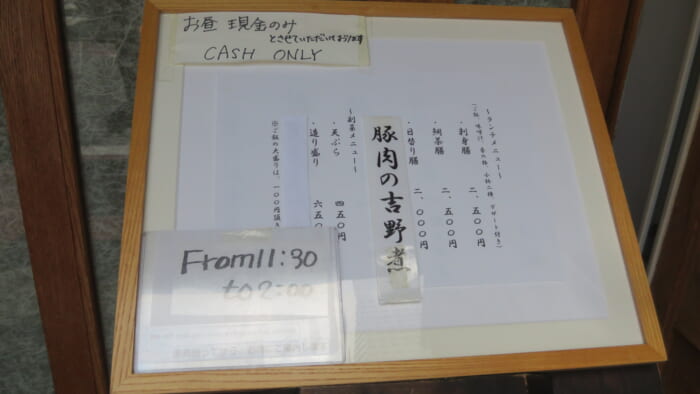 お昼 現金のみ
とさせていただいております
CASH ONLY
~ランチメニュー~
(ご飯、味噌汁、香の物、小鉢二種、デザート付き)
・刺身膳 二、五〇〇円
・網茶膳 二、五〇〇円
・日替り膳 二、〇〇〇円
豚肉の吉野煮
~副菜メニュー~
・天ぷら 四五〇円
・造り盛り 六五〇円
※ご飯の大盛りは、一〇〇円頂き
From 11:30
to 2:00